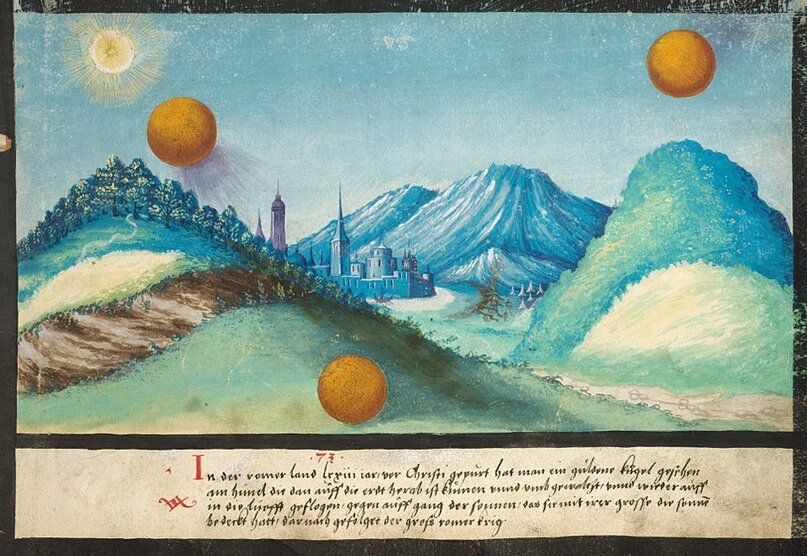 ·73·
In der romer land lxxiii iar vor Christi gepurt hat man ein guldene kugel gesehen
am himel die dan auff die erdt herab ist kumen vnnd vmb gewalzt, vnnd wider auff
in die lüefft geflogen, gegen auff gang der sonnen, das sie mit irer grosse die sonne
bedeckt hatt, dar nach gefolget der gross romer krig.